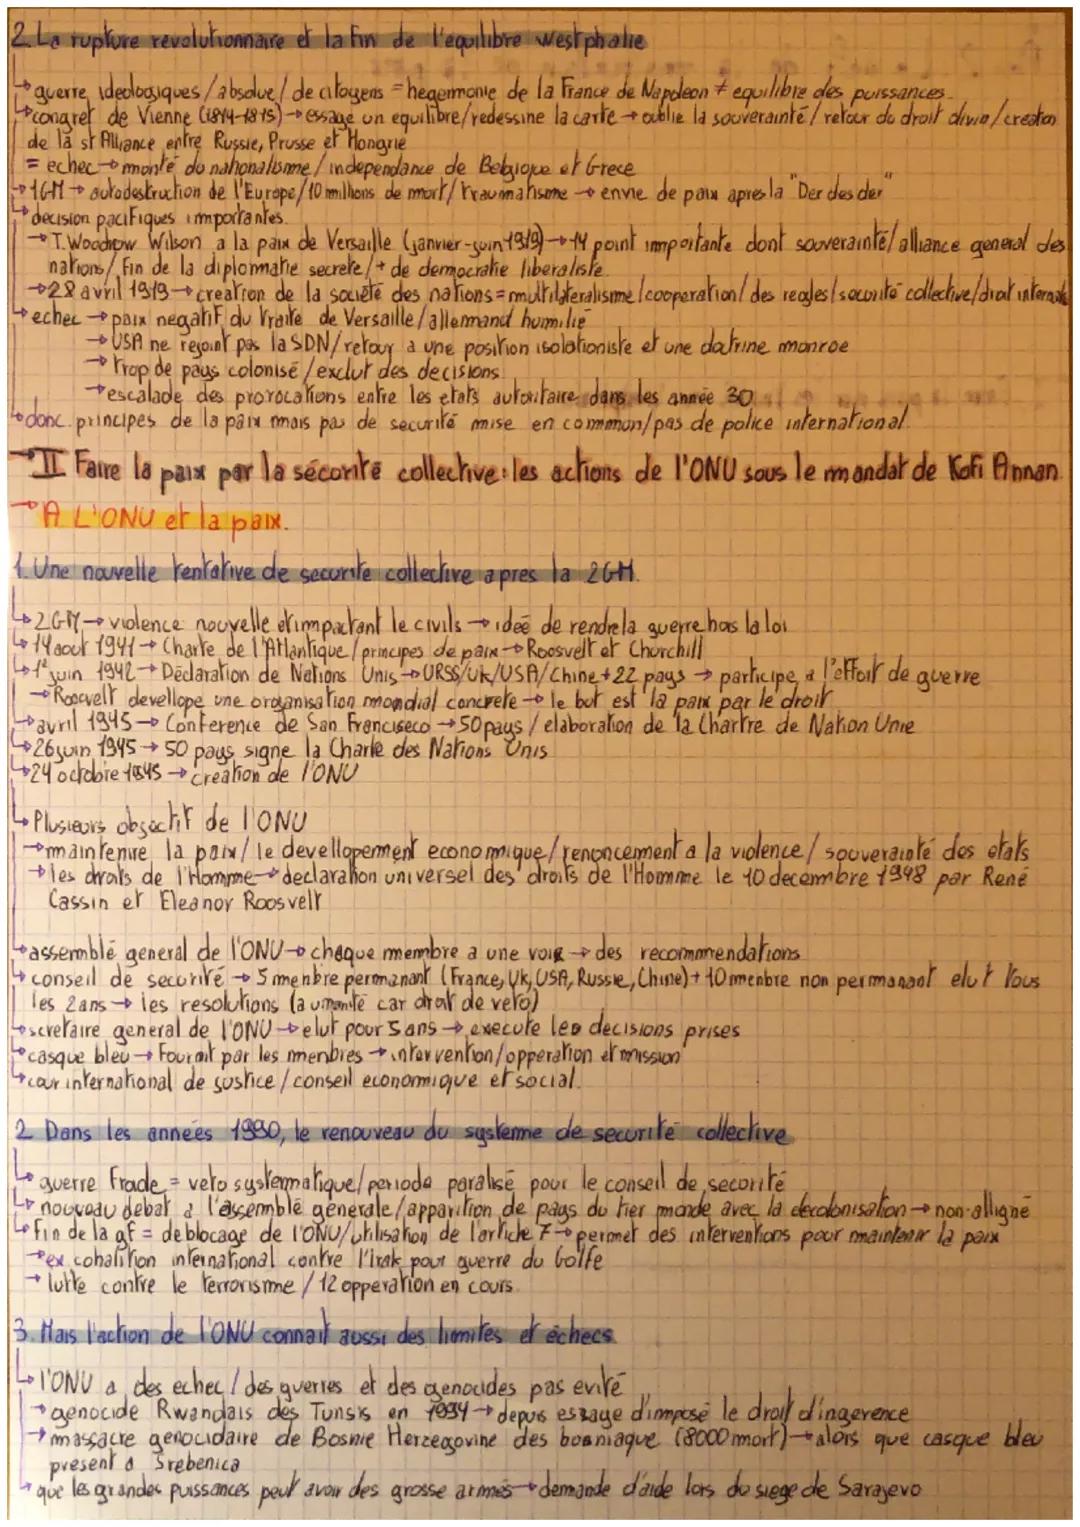 2. La rupture revolutionnaire et la fin de l'equilibre westphalie
↳ guerre ideologiques/absolue/de citoyens = hegermonie de la France de Napoleon ≠ equilibre des puissances.
↳ congret de Vienne (1814-1815) → essaye un equilibre/redessine la carte → oublie la souverainté/retour du droit divin/creation
de la st Alliance entre Russie, Prusse et Hongrie
= echec → monté du nationalisme/independance de Belgique et Grece
↳ 1GM → autodestruction de l'Europe/10 millions de mort/traumatisme → envie de paix apres la "Der des der"
↳ decision pacifiques importantes.
→ T. Woodrow Wilson a la paix de Versaille (janvier-juin 1919) → 14 point importante dont souverainté/alliance general des
nations/fin de la diplomatie secrete/+ de democratie liberaliste.
→ 28 avril 1919 → creation de la societé des nations = multilateralisme/cooperation/des regles/securité collective/droit internate
↳ echec → paix negatif du traité de Versaille/allemand humilié
→ USA ne rejoint pas la SDN/retour a une position isolationiste et une doctrine monroe
→ trop de pays colonisé/exclut des decisions
→ escalade des provocations entre les etats autoritaire dans les année 30
↳ donc principes de la paix mais pas de securité mise en commun/pas de police international.
→ II Faire la paix par la sécurité collective: les actions de l'ONU sous le mandat de Kofi Annan.
→ A L'ONU et la paix.
1. Une nouvelle tentative de securite collective apres la 2GM.
↳ 2GM → violence nouvelle et impactant le civils → ideé de rendre la guerre hors la loi
↳ 14 aout 1941 → Charte de l'Atlantique/principes de paix → Roosvelt et Churchill
↳ 1er juin 1942 → Déclaration de Nations Unis → URSS/UK/USA/Chine + 22 pays → participe a l'effort de guerre
→ Roosvelt devellope une organisation mondial concrete → le but est la paix par le droit
↳ avril 1945 → Conference de San Franciseco → 50 pays/elaboration de la Chartre de Nation Unie
↳ 26 juin 1945 → 50 pays signe la Charte des Nations Unis
↳ 24 octobre 1945 → creation de l'ONU
↳ Plusieurs objectif de l'ONU
→ maintenire la paix/le devellopement economique/renoncement a la violence/souverainté des etats
→ les droits de l'Homme → declaration universel des droits de l'Homme le 10 decembre 1948 par René
Cassin et Eleanor Roosvelt
↳ assemblé general de l'ONU → chaque membre a une voix → des recommendations
↳ conseil de securité → 5 menbre permanant (France, UK, USA, Russie, Chine) + 10 menbre non permanant elut tous
les 2 ans → les resolutions (a umanité car droit de veto)
↳ scretaire general de l'ONU → elut pour 5 ans → execute les decisions prises
↳ casque bleu → fournit par les menbres → intervention/opperation et mission
↳ cour international de justice/conseil economique et social.
2 Dans les années 1990, le renouveau du systeme de securité collective
↳ guerre froide = veto systematique/periode paralisé pour le conseil de securité
↳ nouveau debat a l'assemblé generale/apparition de pays du tier monde avec la decolonisation → non-alligné
↳ Fin de la gf = deblocage de l'ONU/utilisation de l'article 7 → permet des interventions pour maintenir la paix
→ ex cohalition international contre l'Irak pour guerre du Golfe
→ lutte contre le terrorisme/12 opperation en cours.
3. Mais l'action de l'ONU connait aussi des limites et échecs
↳ l'ONU a des echec/des guerres et des genocides pas evité
→ genocide Rwandais des Tunsis en 1994 → depuis essaye d'imposé le droit d'ingerence
→ massacre genocidaire de Bosnie Herzegovine des bosniaque (8000 mort) → alors que casque bleu
present a Srebenica
↳ que les grandes puissances peut avoir des grosse armés → demande d'aide lors du siege de Sarajevo